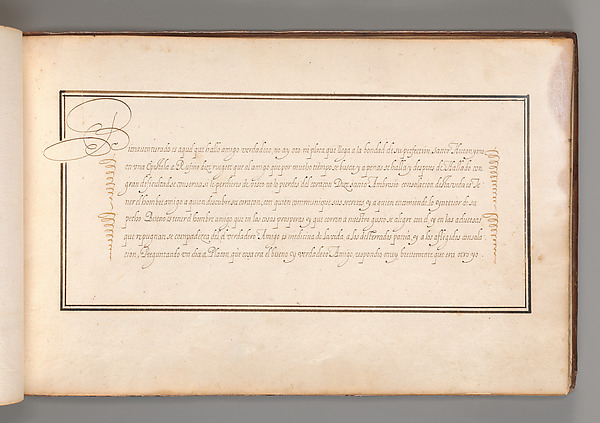 Bienaventurado es aquel que halla amigo verdadero, no ay oro ni plata que llega a la bondad de su perfeccion. Santo
en una Epistola a Rufino dize ruegote que al amigo que por mucho tiempo se busca y a penas se halla y despues de Hallado con
gran dificultad se conserva, si le perdieres de vista no lo pierdas del corazon. Dize Santo Ambrosio consolacion es la vida te
ner el hombre amigo a quien descubra su corazon, con quien communique sus secretos, y a quien encomiende lo interior de su
pecho. Bueno es tener el hombre amigo que en las cosas prosperas y que corren a nuestro gusto se alegre con el, y en las adversas
que repugnan se compadezca del, el verdadero Amigo es medicina de la vida, a los desterrados patria, y a los affligidos consola
cion, Preguntando un dia a Platon, que cosa era el bueno y verdadero Amigo, respondio muy brevemente que era otro yo.